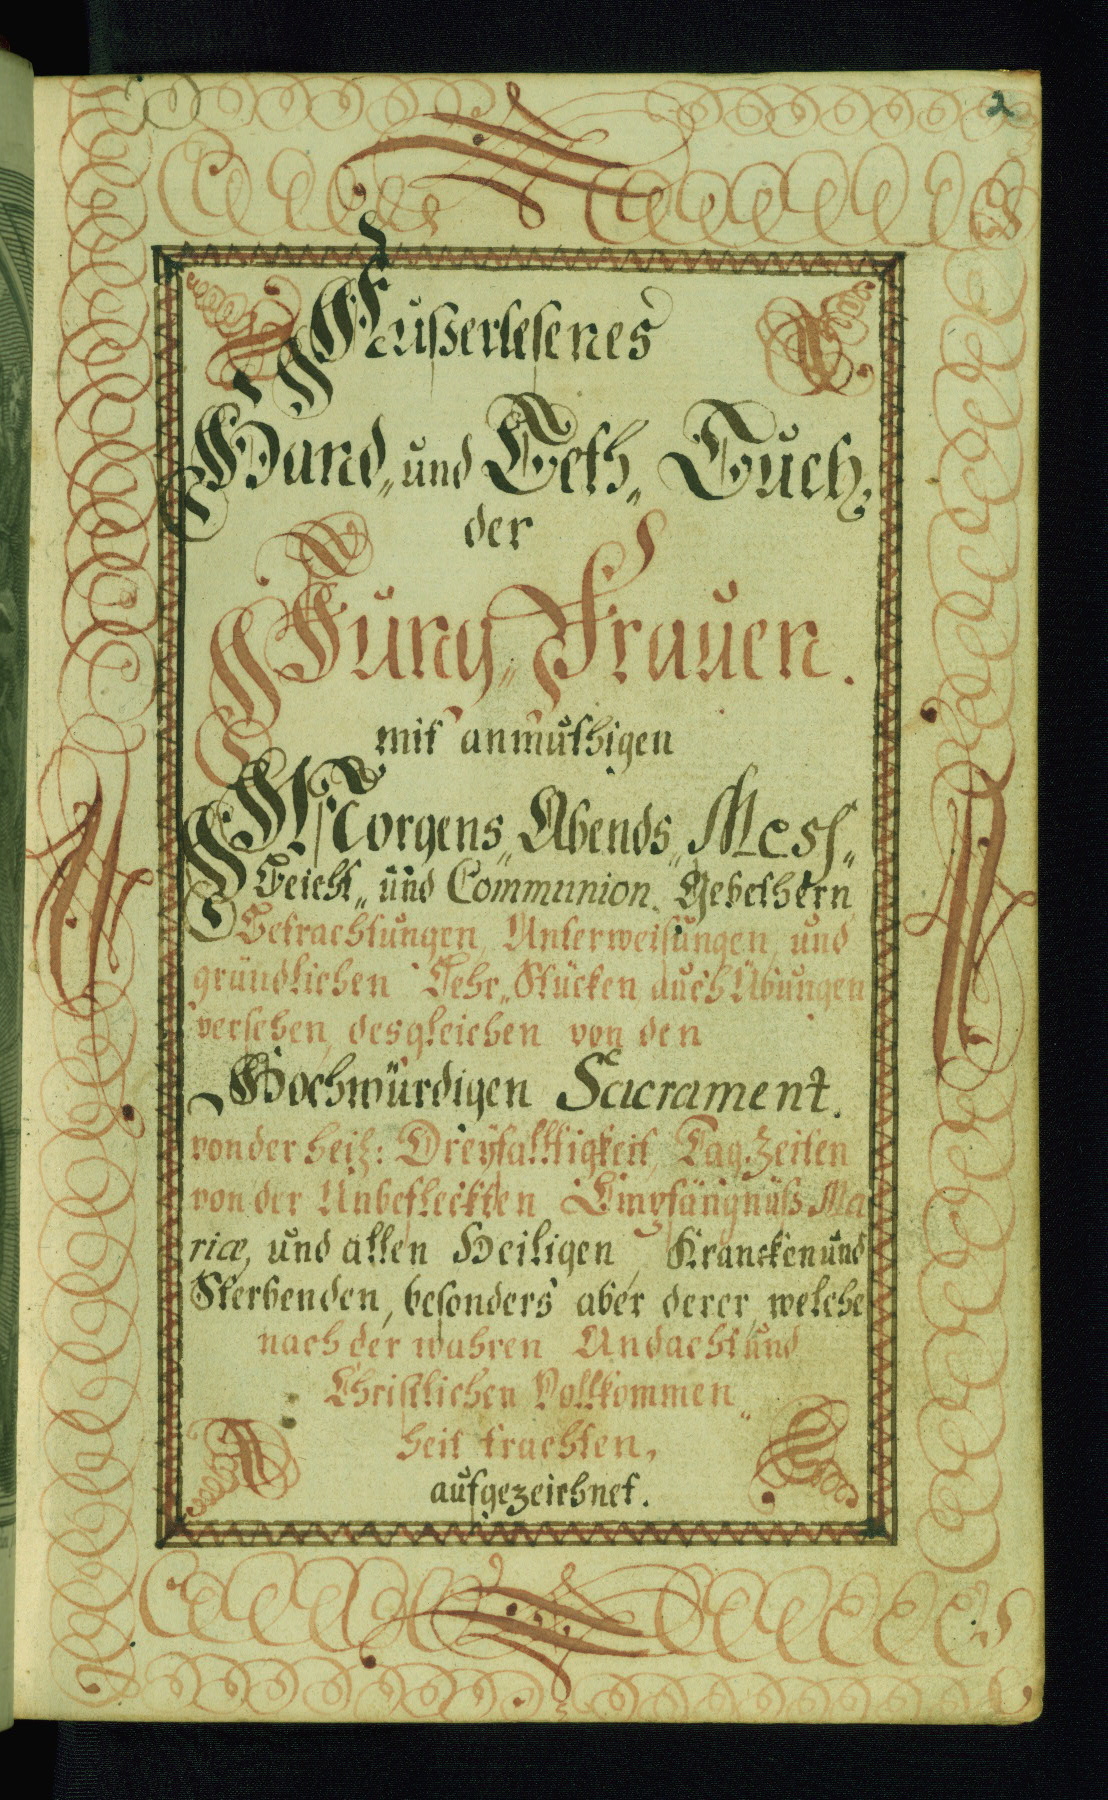 2
Außerlesenes
Hand„ und Beth„ Buch,
der
Jung„ Frauen.
mit anmuthigen
Morgens„ Abends„ Mess„
Beicht„ und Communion. Gebethern
Betrachtungen, Unterweisungen, und
gründlichen Lehr„ Stücken, auch Übungen
versehen, desgleichen von den
Hochwürdigen Sacrament.
von der heil: Dreyfalltigkeit, Tag Zeiten
von der Unbefleckten Empfängnüß Ma
riæ, und allen Heiligen, Krancken und
Sterbenden, besonders aber derer, welche
nach der wahren Andacht und
Christlichen Vollkommen„
heit trachten,
aufgezeichnet.